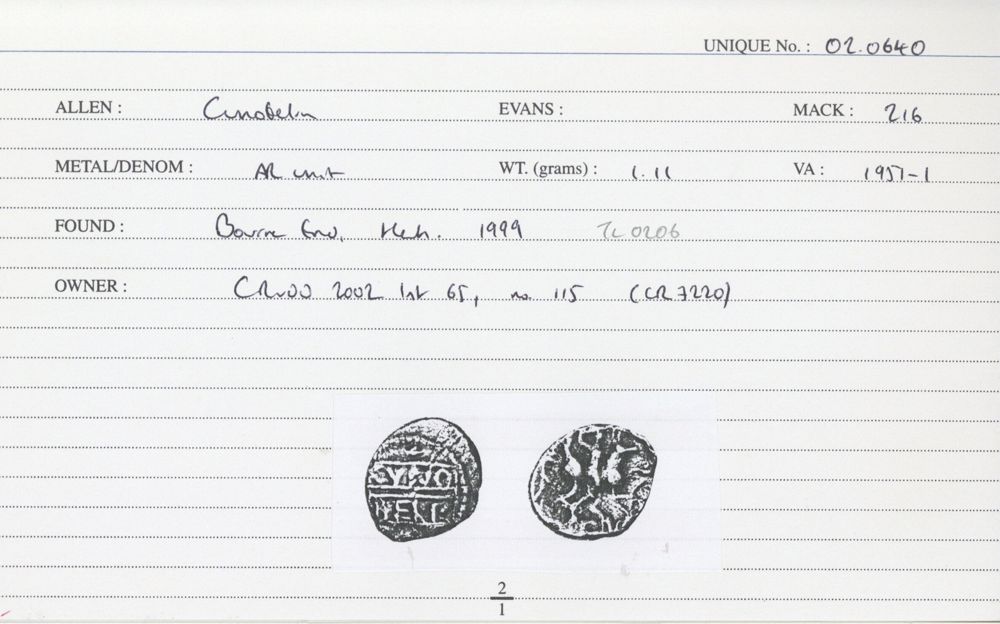 UNIQUE No. : 02.0640
ALLEN : Cunobelin EVANS : MACK : 216
METAL/DENOM : AR unit WT. (grams) : 1.11 VA : 1951-1
FOUND : Bourne End, Herts. 1999 TL 0206
OWNER : CR 2002 list 65, no. 115 (CR 7220)
2
1